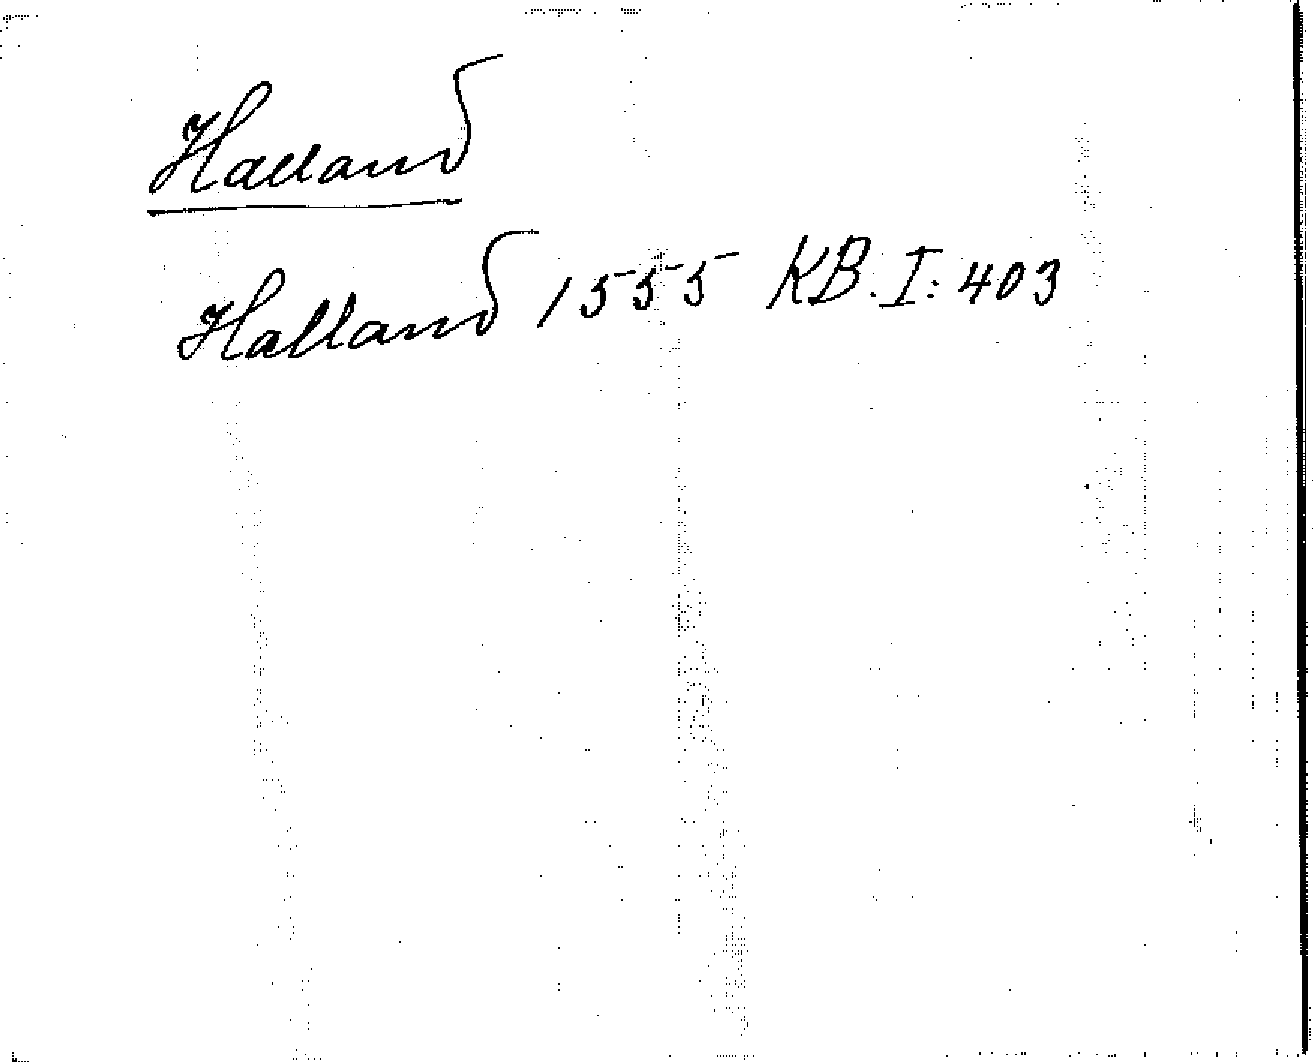 Halland
Halland 1555 KB. I: 403